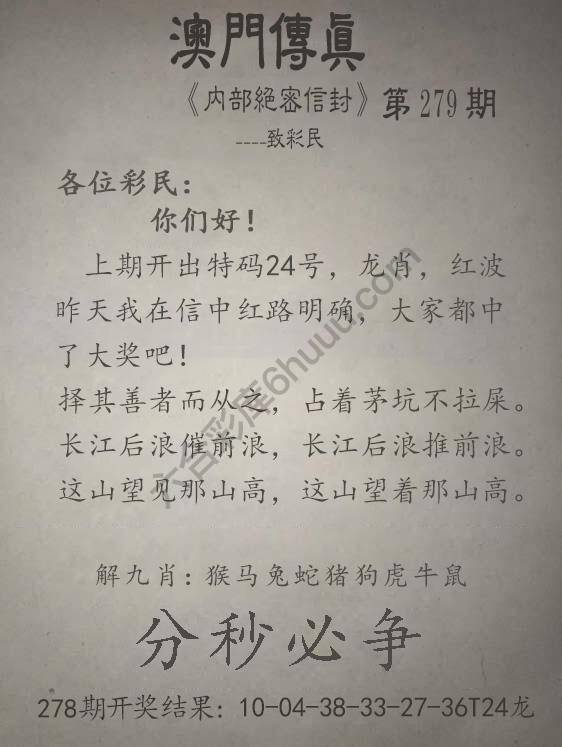 澳門傳眞
《内部絕密信封》第279期
----致彩民
各位彩民：
你们好！
上期开出特码24号，龙肖，红波
昨天我在信中红路明确，大家都中
了大奖吧！
择其善者而从之，占着茅坑不拉屎。
长江后浪催前浪，长江后浪推前浪。
这山望见那山高，这山望着那山高。
解九肖：猴马兔蛇猪狗虎牛鼠
分秒必争
278期开奖结果：10-04-38-33-27-36T24龙
六合彩库6huuu.com